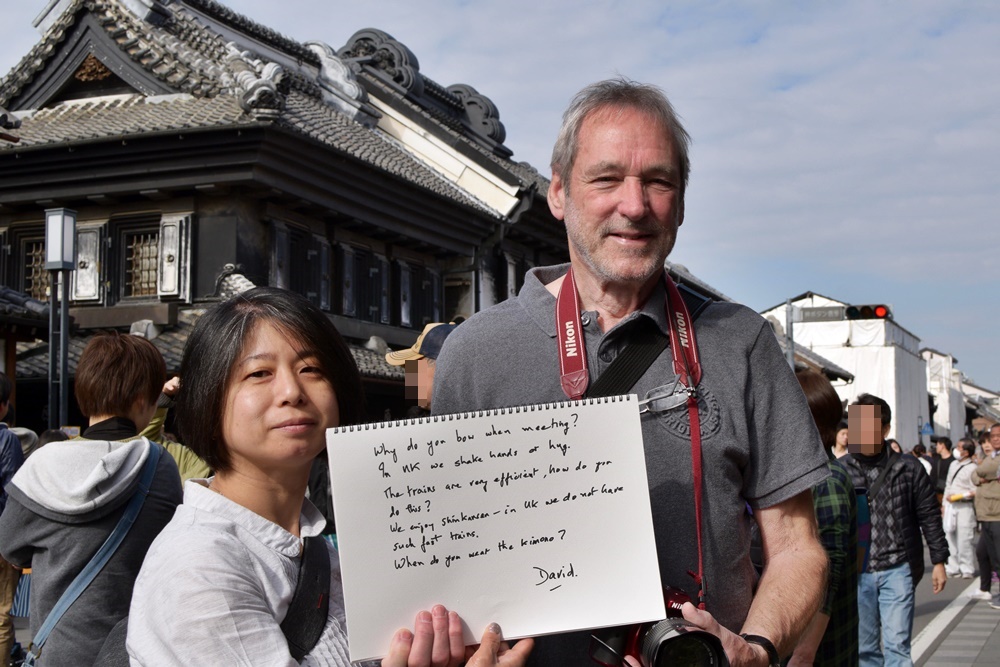 Nikon
Nikon
Why do you bow when meeting?
In UK we shake hands or hug.
The trains are very efficient, how do you
do this?
We enjoy shinkansen – in UK we do not have
such fast trains.
When do you wear the kimono?
David.
Nikon